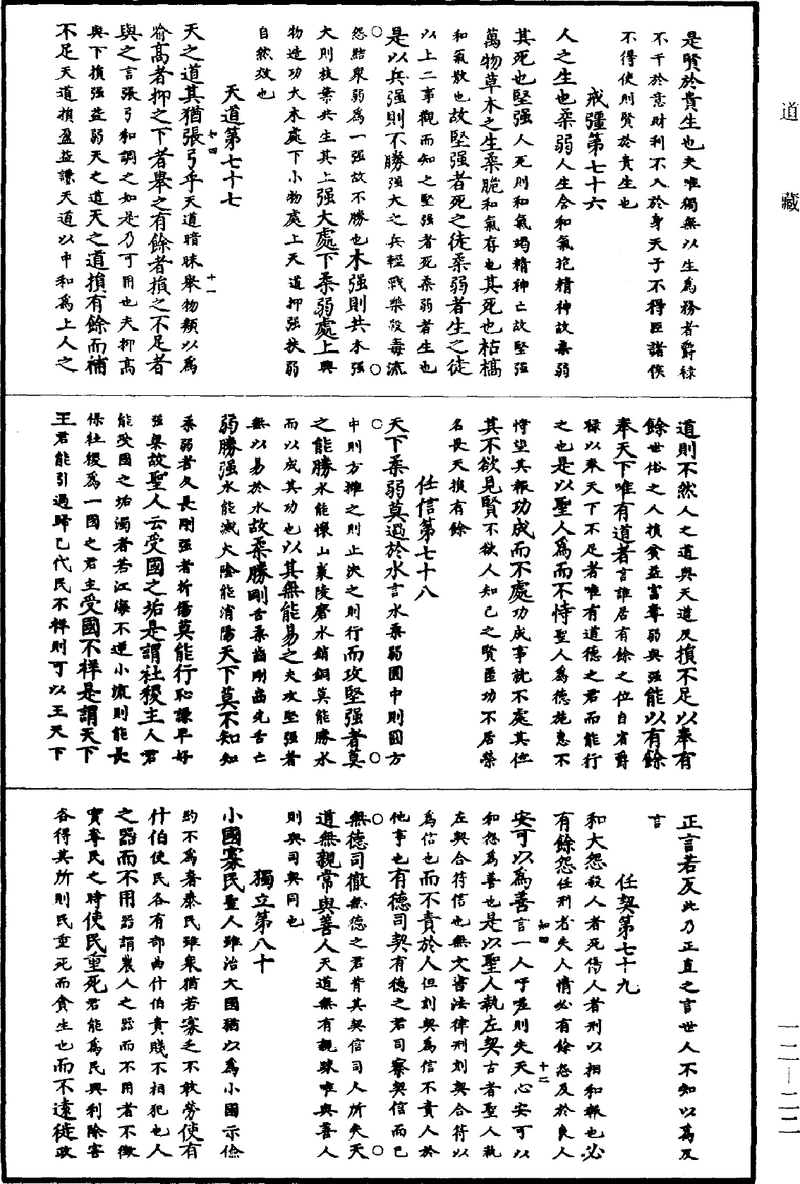 道藏
是賢於貴生也夫唯獨無以生為務者爵祿
不干於意財利不入於身天子不得臣諸侯
不得使則賢於貴生也
戒彊第七十六
人之生也柔弱人生含和氣抱精神故柔弱
其死也堅强人死則和氣竭精神亡故堅强
萬物草木之生柔脆和氣存也其死也枯槁
和氣散也故堅强者死之徒柔弱者生之徒
以上二事觀而知之堅强者死柔弱者生也
是以兵强則不勝强大之兵輕戰樂殺毒流
怨貽衆弱為一强故不勝也木强則共木强
大則枝葉共生其上强大處下柔弱處上興
物造功大木處下小物處上天道抑强扶弱
自然效也
天道第七十七
知四 十一
天之道其猶張弓乎天道暗昧舉物類以為
喻高者抑之下者舉之有餘者損之不足者
與之言張弓和調之如是乃可用也夫抑高
與下損强益弱天之道天之道損有餘而補
不足天道損盈益謙天道以中和為上人之
道則不然人之道與天道反損不足以奉有
餘世俗之人損貧益富奪弱與强能以有餘
奉天下唯有道者言誰居有餘之位自省爵
祿以奉天下不足者唯有道德之君而能行
之也是以聖人為而不恃聖人為德施惠不
恃望其報功成而不處功成事就不處其位
其不欲見賢不欲人知己之賢匿功不居榮
名畏天損有餘
任信第七十八
天下柔弱莫過於水言水柔弱圓中則圓方
中則方擁之則止決之則行而攻堅强者莫
之能勝水能懷山襄陵磨水銷銅莫能勝水
而以成其功也以其無能易之夫攻堅强者
無以易於水故柔勝剛舌柔齒剛齒先舌亡
弱勝强水能滅火陰能消陽天下莫不知知
柔弱者久長剛强者折傷莫能行恥謙卑好
强梁故聖人云受國之垢是謂社稷主人君
能受國之垢濁者若江海不逆小流則能長
保社稷為一國之君主受國不祥是謂天下
王君能引過歸己代民不祥則可以王天下
正言若反此乃正直之言世人不知以為反
言
任契第七十九
和大怨殺人者死傷人者刑以相和報也必
有餘怨任刑者失人情必有餘怨及於良人
知四 十二
安可以為善言一人吁嗟則失天心安可以
和怨為善也是以聖人執左契古者聖人執
左契合符信也無文書法律刑刻契合符以
為信也而不責於人但刻契為信不責人於
他事也有德司契有德之君司察契信而已
無德司徹無德之君背其契信司人所失天
道無親常與善人天道無有親踈唯與善人
則與司與同也
獨立第八十
小國寡民聖人雖治大國猶以為小國示儉
約不為奢泰民雖衆猶若寡乏不敢勞使有
什伯使民各有部曲什伯貴賤不相犯也人
之器而不用器謂農人之器而不用者不徵
實奪民之時使民重死君能為民興利除害
各得其所則民重死而貪生也而不遠徙政
一二—二二